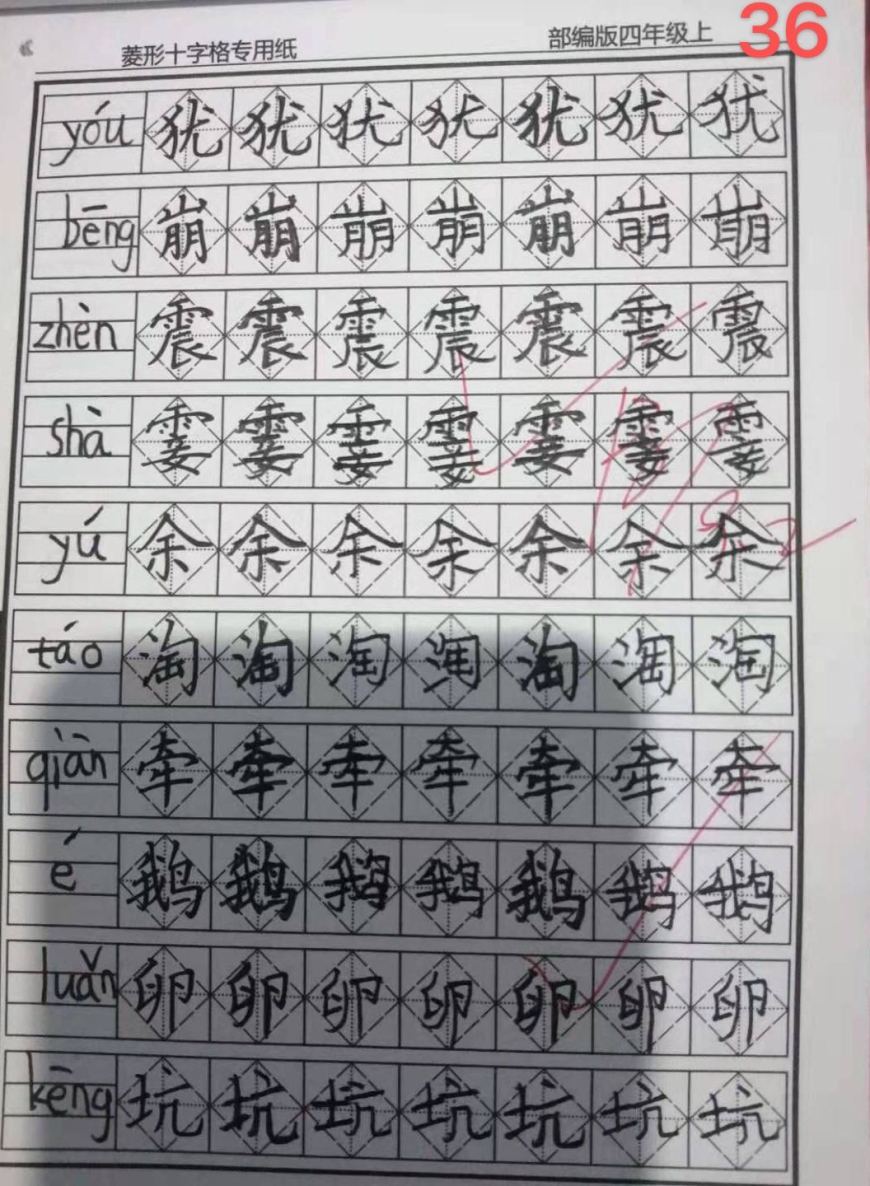 菱形十字格专用纸 部编版四年级上 36
yóu 犹 犹 犹 犹 犹 犹 犹
bēng 崩 崩 崩 崩 崩 崩 崩
zhèn 震 震 震 震 震 震 震
shà 霎 霎 霎 霎 霎 霎 霎
yú 余 余 余 余 余 余 余
táo 淘 淘 淘 淘 淘 淘 淘
qiàn 牵 牵 牵 牵 牵 牵 牵
é 鹅 鹅 鹅 鹅 鹅 鹅 鹅
luǎn 卵 卵 卵 卵 卵 卵 卵
kēng 坑 坑 坑 坑 坑 坑 坑